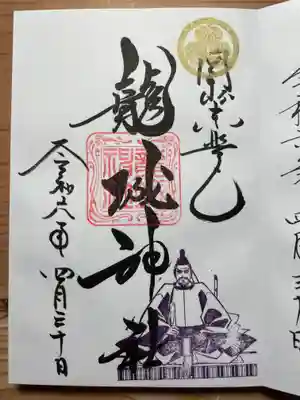 龍城神社
令和六年 四月三十日
令和六年 四月三十日